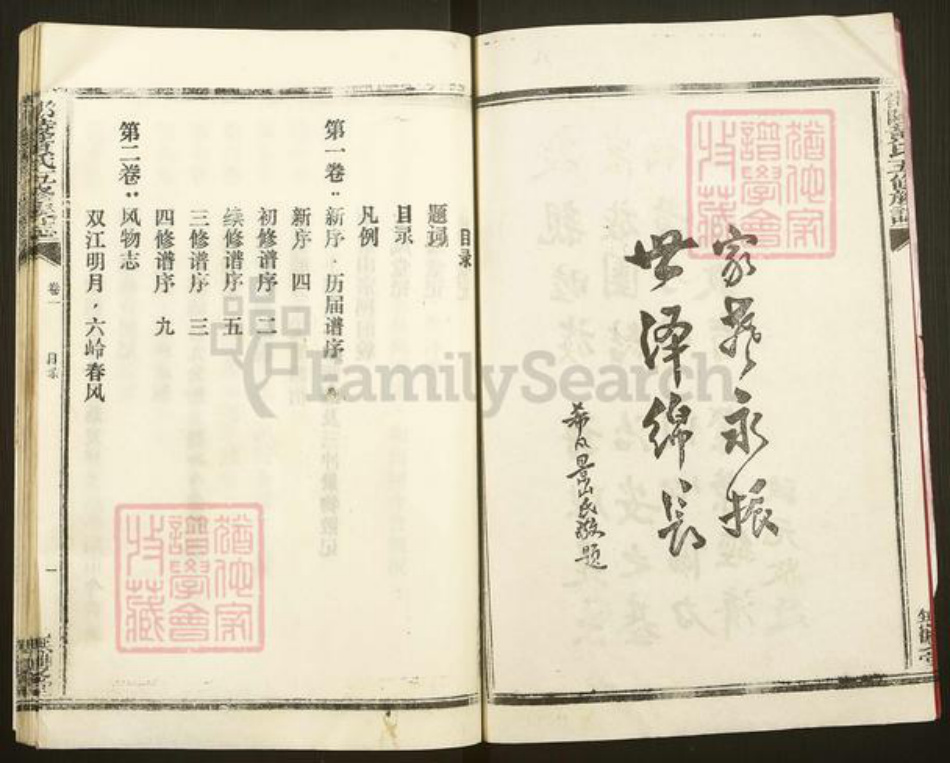 家声永振
世泽绵长
目录
题词
目录
凡例
第一卷：新序·历届谱序
新序 四
初修谱序 二
续修谱序 五
三修谱序 三
四修谱序 九
第二卷：风物志
双江明月，六岭春风
卷一
目录
一
猶他家譜學會收藏
猶他家譜學會收藏
FamilySearch